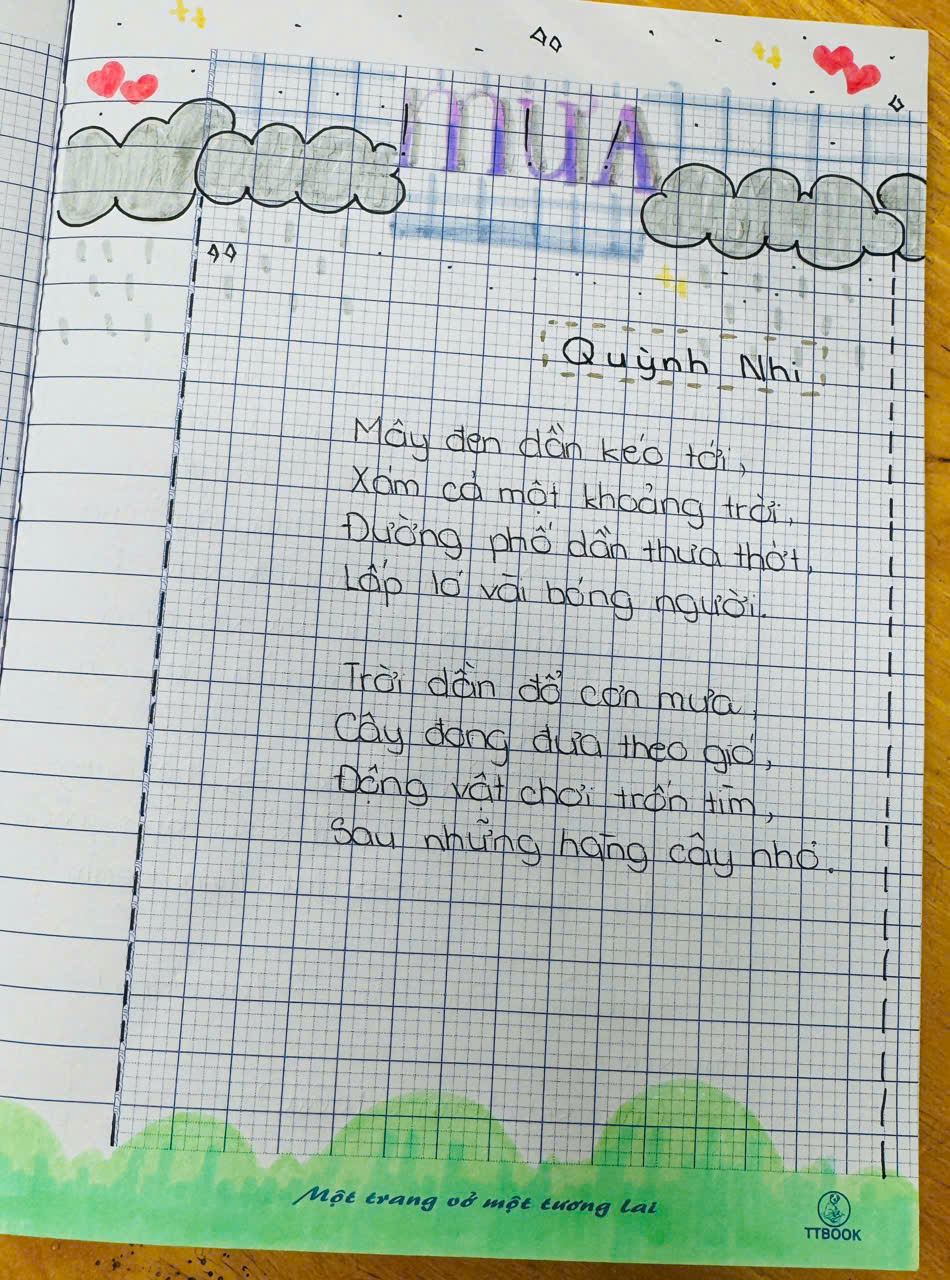 mưa
Quỳnh Nhi
Mây đen dần kéo tới,
Xám cả một khoảng trời,
Đường phố dần thưa thớt,
Lấp ló vài bóng người.
Trời dần đổ cơn mưa,
Cây đong đưa theo gió,
Động vật chơi trốn tìm,
Sau những hàng cây nhỏ.
Một trang vở một tương lai
TTBOOK